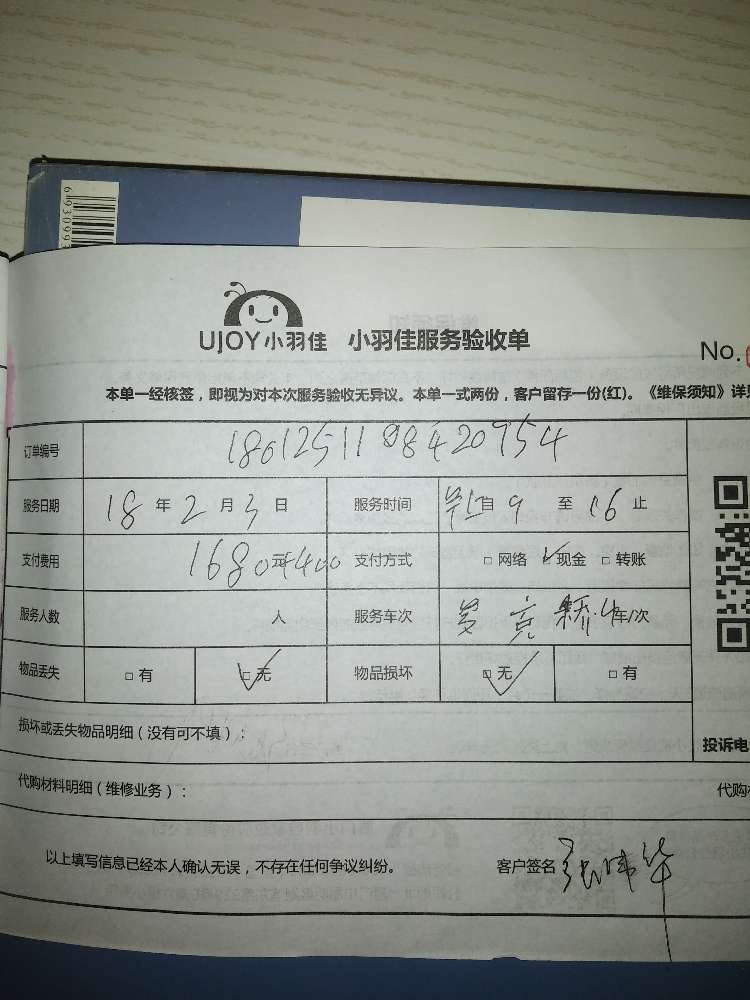 693099
UJOY小羽佳 小羽佳服务验收单
No.
本单一经核签，即视为对本次服务验收无异议。本单一式两份，客户留存一份(红)。《维保须知》详见
订单编号 1861251198420754
服务日期 18年2月3日 服务时间 自9至16止
支付费用 1680元+400 支付方式 □网络 ☑现金 □转账
服务人数 人 服务车次 车/次
物品丢失 □有 ☑无 物品损坏 ☑无 □有
损坏或丢失物品明细（没有可不填）：
投诉电
代购材料明细（维修业务）：
代购
以上填写信息已经本人确认无误，不存在任何争议纠纷。 客户签名 张晴华